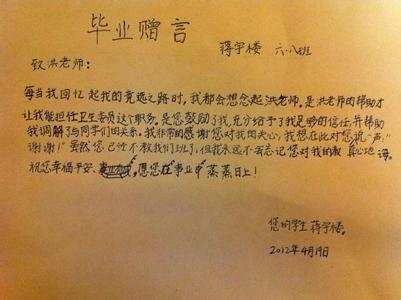 毕业赠言
蒋宇楼 六.八班
致洪老师:
每当我回忆起我的竞选之路时,我都会想念起洪老师,是洪老师的帮助才
让我能担任卫生委员这个职务。是您鼓励了我,充分给予了我足够的信任,并帮助
我调解了与同学们的关系。我非常的感谢您对我的关心,我想在此对您说一声“
谢谢!”虽然您已经不教我们班了,但我永远不会忘记您对我的教真心地诲。
祝您幸福平安、愿您在事业中蒸蒸日上!
您的学生 蒋宇楼。
2012年4月19日